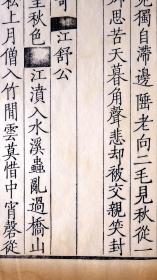 見獨自滯邊陲老向二毛見秋從
外思苦天暮角聲悲却被交親笑封
江舒公
里秋色
江濆入水溪蟲亂過橋山
松上月僧入竹間雲莫惜中宵磬從